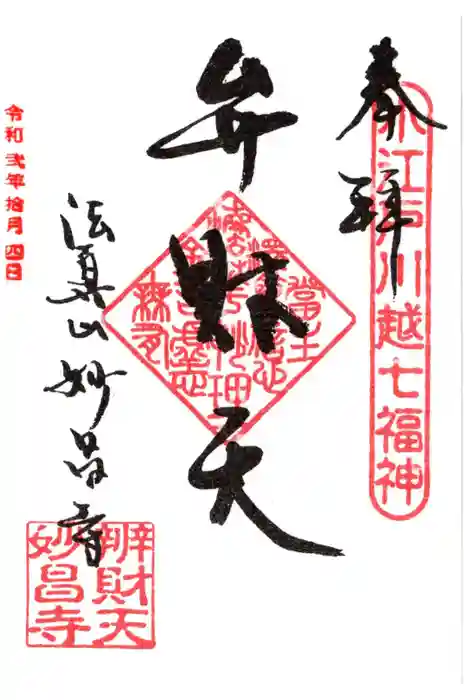 奉拝
小江戸川越七福神
弁財天
法真山妙昌寺
辨財天
妙昌寺
令和弐年拾月四日